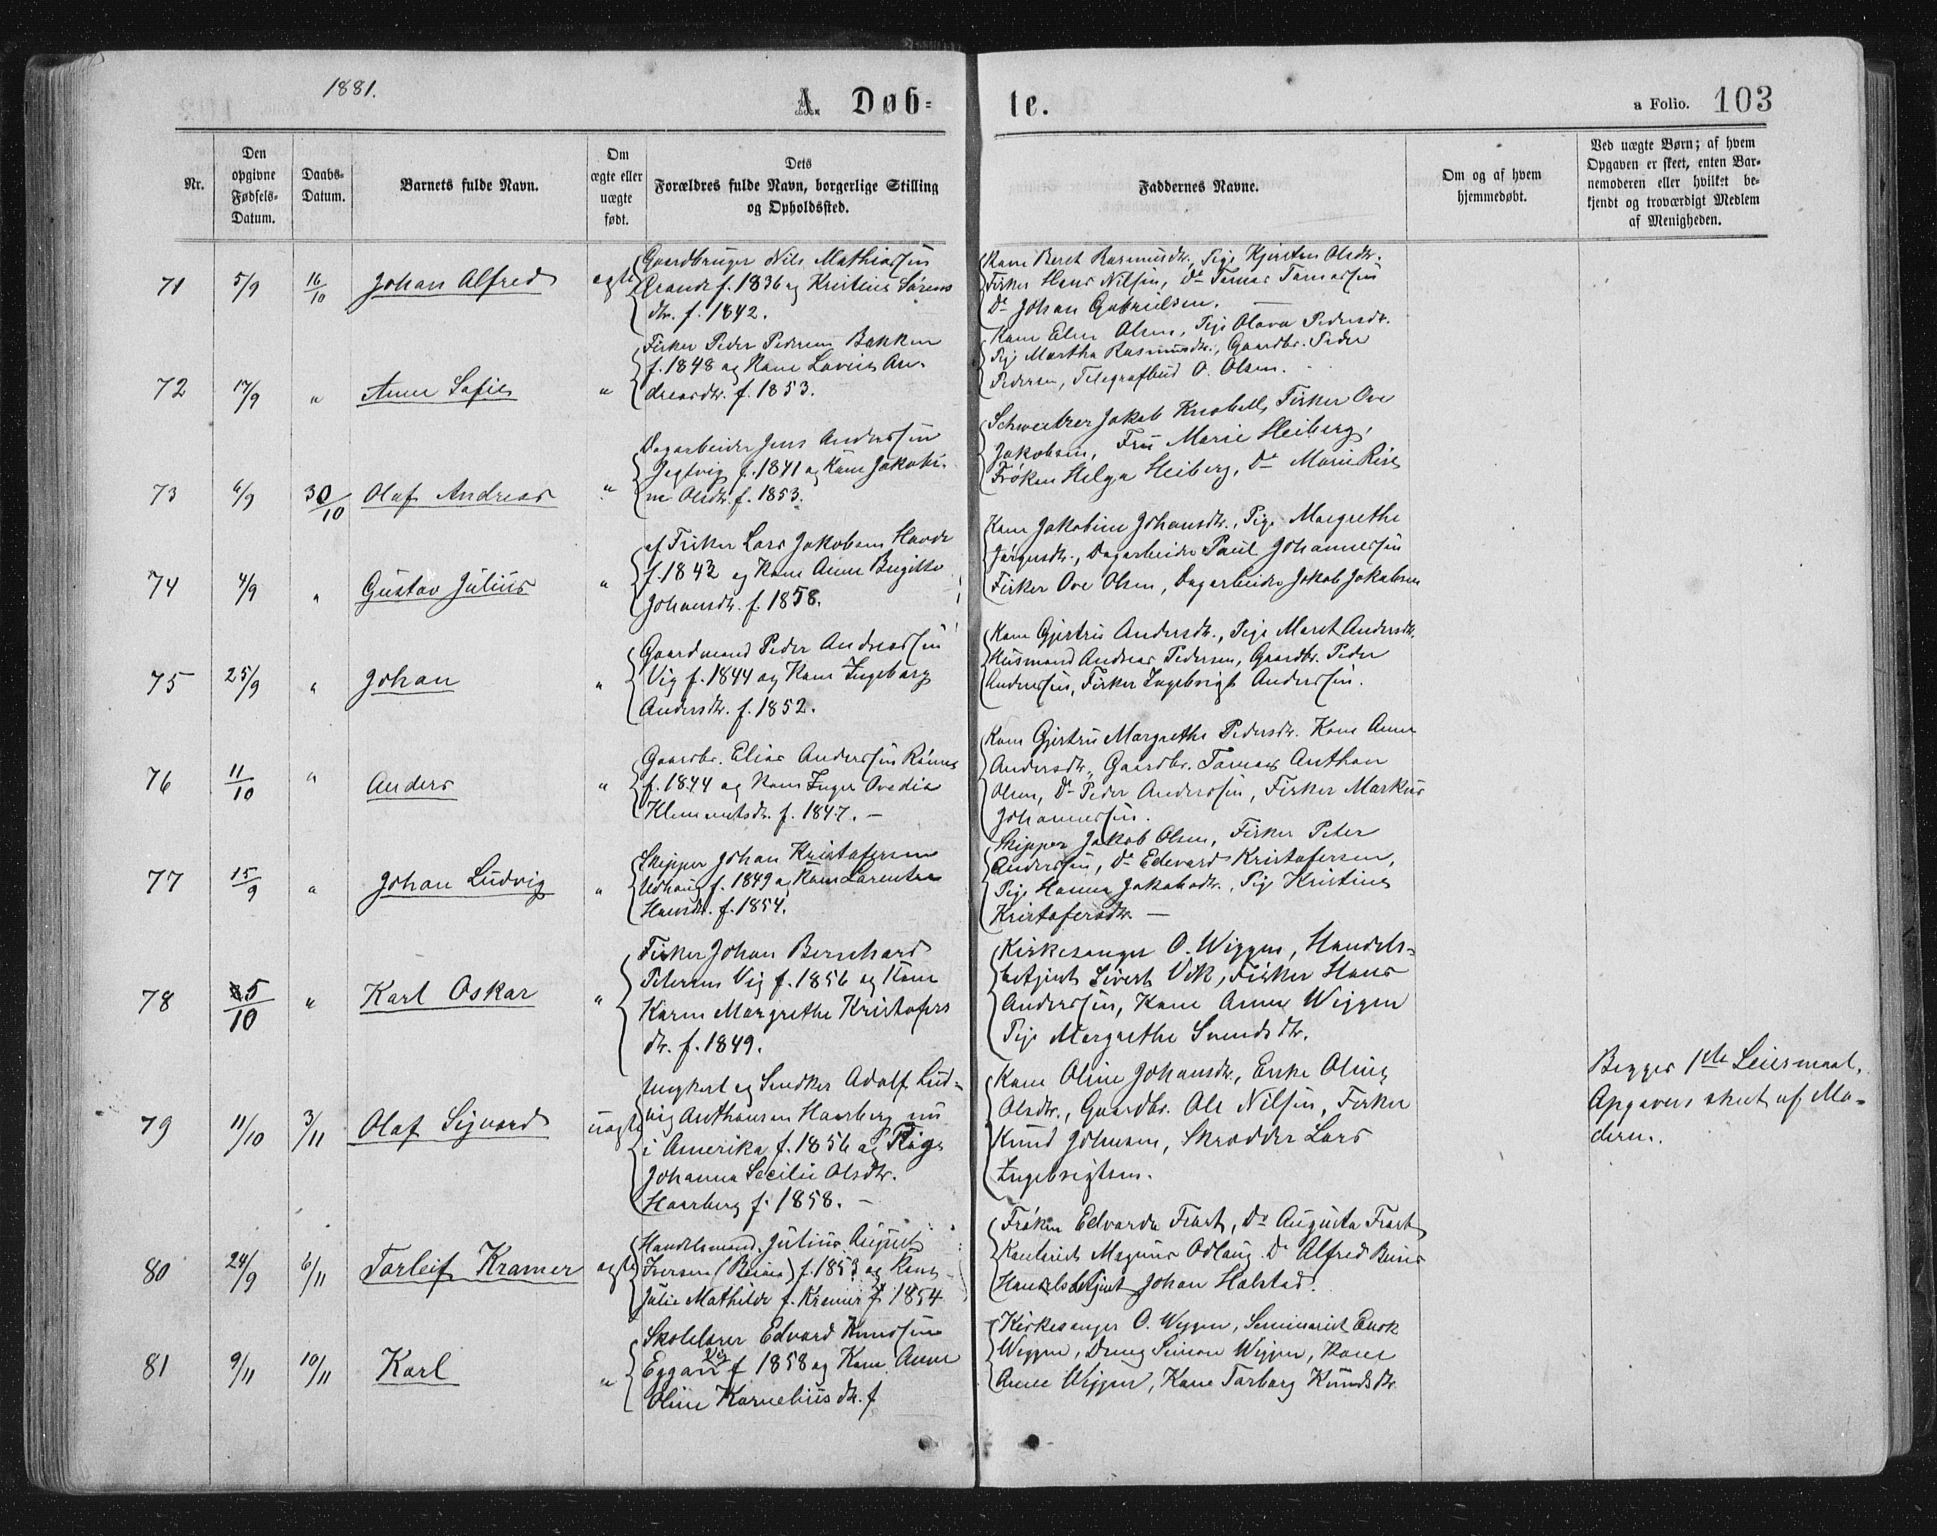 1881.
A. Døb-
te.
a Folio. 103
Nr.
Den opgivne Fødsels-Datum.
Daabs-Datum.
Barnets fulde Navn.
Om ægte eller uægte født.
Dets Forældres fulde Navn, borgerlige Stilling og Opholdsted.
Faddernes Navne.
Om og af hvem hjemmedøbt.
Ved uægte Børn; af hvem Opgaven er skeet, enten Barnemoderen eller hvilket bekjendt og troværdigt Medlem af Menigheden.
71 5/9 16/10 Johan Alfred ægte
Gaardbruger Nils Mathiassen
f. 1836 og Kristine Sørens
dtr. f. 1842.
Kone Beret Rasmusdtr., Pige Kjersten Olsdtr.
Fisker Hans Nilsen, Do Tomas Tomassen
Do Johan Gabrielsen.
72 17/9 " Anne Sofie "
Fisker Peder Pedersen Bakken
f. 1848 og Kone Lovise An-
dreasdtr. f. 1853.
Kone Elen Olsen, Pige Olava Pedersdtr.
Pige Martha Rasmusdtr., Gaardbr. Peder
Pedersen, Telegrafbud O. Olsen.
73 6/9 30/10 Olaf Andreas "
Dagarbeider Jens Anderssen
Jegtvig f. 1841 og Kone Jakobi-
ne Olsdtr. f. 1853.
Schweitzer Jakob Knobell, Fisker Ove
Jakobsen, Fru Marie Heiberg,
Frøken Helga Heiberg, Do Marie Rise
74 4/9 " Gustav Julius "
af Fisker Lars Jakobsen Havde
f. 1842 og Kone Anne Birgitte
Johansdtr. f. 1858.
Kone Jakobine Johansdtr., Pige Margrethe
Jørgensdtr., Dagarbeider Paul Johannessen
Fisker Ove Olsen, Dagarbeider Jakob Jakobsen
75 25/9 " Johan "
Gaardmand Peder Andreassen
Vig f. 1844 og Kone Ingeborg
Andersdtr. f. 1852.
Kone Gjertru Andersdtr., Pige Maret Andersdtr.
Husmand Andreas Pedersen, Gaardbr. Peder
Anderssen, Fisker Ingebrigt Anderssen.
76 11/10 " Anders "
Gaardbr. Elias Anderssen
f. 1844 og Kone Inger Ovedia
Klemmetsdtr. f. 1847. —
Kone Gjertru Margrethe Pedersdtr. Kone Anne
Andersdtr., Gaardbr. Tomas Anthon
Olsen, Do Peder Anderssen, Fisker Markus
Johannessen.
77 15/9 " Johan Ludvig "
Skipper Johan Kristofersen
Udhaug f. 1849 og Kone Larentse
Hansdtr. f. 1854.
Skipper Jakob Olsen, Fisker Peter
Anderssen, Do Edevard Kristofersen,
Pige Hanna Jakobsdtr., Pige Kristine
Kristofersdtr. —
78 5/10 " Karl Oskar "
Fisker Johan Bernhard
Petersen Vig f. 1856 og Kone
Karen Margrethe Kristofers
dtr. f. 1849.
Kirkesanger O. Wiggen, Handels-
betjent Sivert Vik, Fisker Hans
Anderssen, Kone Anne Wiggen
Pige Margrethe Svendsdtr.
79 11/10 3/11 Olaf Sigvard uægte
Ungkarl og Snedker Adolf Lud-
vig Anthonsen Haarberg nu
i Amerika f. 1856 og Pige
Johanna Secilie Olsdtr.
Haarberg f. 1858. —
Kone Oline Johansdtr., Enke Oline
Olsdtr., Gaardbr. Ole Nilsen, Fisker
Knud Johnsen, Skrædder Lars
Ingebrigtsen.
Begges 1ste Leiermaal,
Opgaven skeet af Mo-
deren.
80 24/9 6/11 Torleif Kramer ægte
Handelsmand Julius August
Iversen (Beian) f. 1853 og Kone
Julie Mathilde f. Kramer f. 1854
Frøken Edvarda Frost, Do Augusta Frost
Kontorist Magnus Odlaug. Do Alfred
Handelsbetjent Johan Halstad.
81 9/11 10/11 Karl "
Skolelærer Edvard Knudsen
Eggan Vig f 1858 og Kone Anne
Oline Korneliusdtr. f
Kirkesanger O. Wiggen, Seminarist Enok
Wiggen, Dreng Simon Wiggen, Kone
Anne Wiggen, Kone Torborg Knudsdtr.